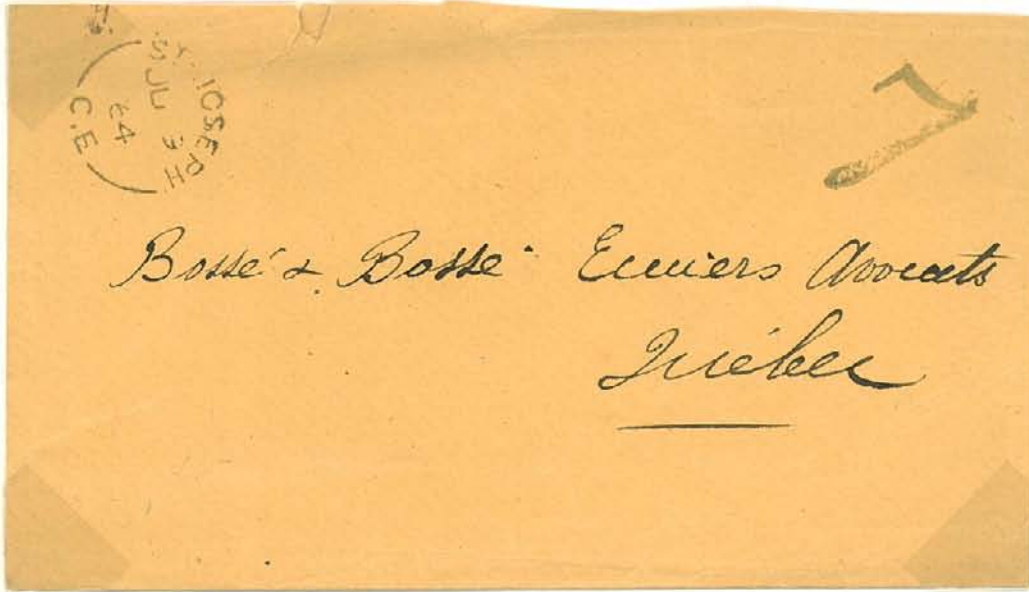 ST. JOSEPH
JU 9
64
C.E
7
Bossé & Bossé Ecuiers Avocats
Québec